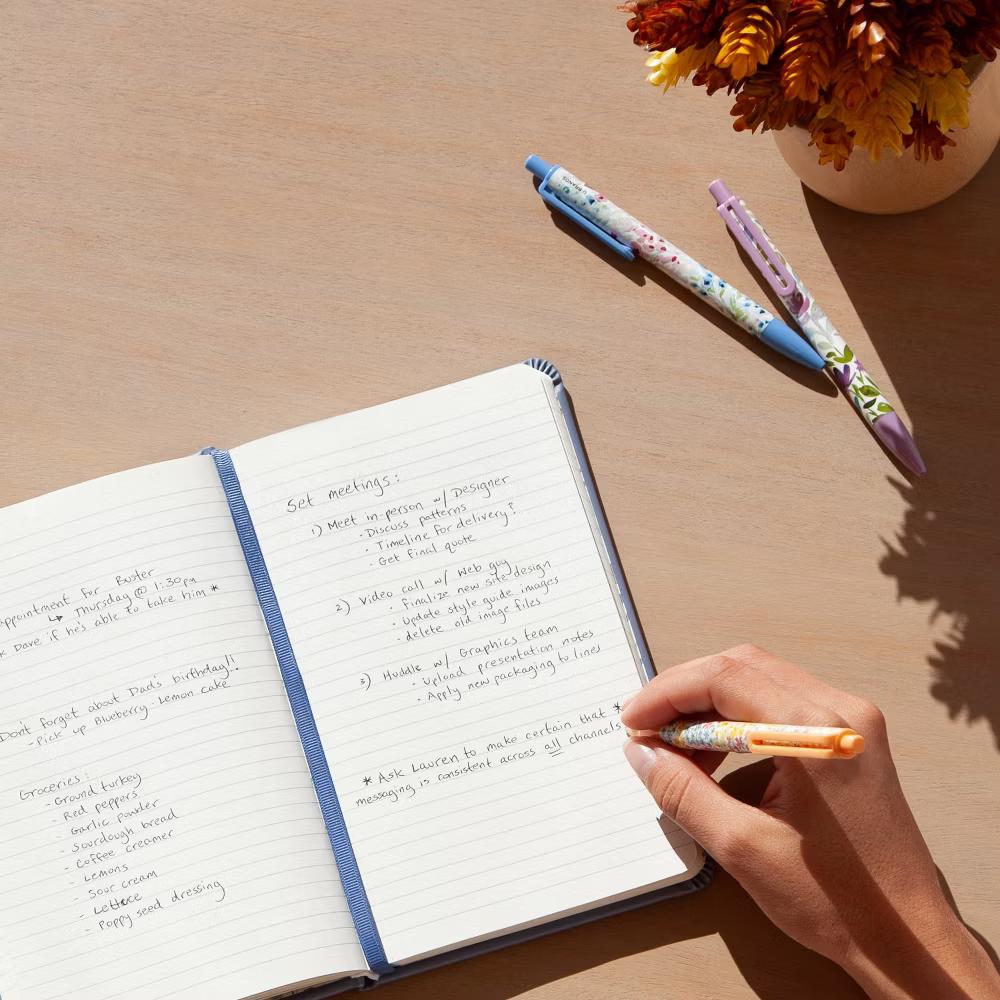 ppointment for Buster
↳ Thursday @ 1:30pm
k Dave if he's able to take him *
Don't forget about Dad's birthday!!
- Pick up Blueberry-Lemon cake
Groceries:
- Ground turkey
- Red peppers
- Garlic powder
- Sourdough bread
- Coffee creamer
- Lemons
- Sour cream
- Lettuce
- Poppy seed dressing
Set meetings:
1) Meet in-person w/ Designer
· Discuss patterns
· Timeline for delivery?
· Get final quote
2) Video call w/ Web guy
· Finalize new site design
· Update style guide images
· delete old image files
3) Huddle w/ Graphics team
· Upload presentation notes
· Apply new packaging to lines
* Ask Lauren to make certain that *
messaging is consistent across all channels
U BRANDS